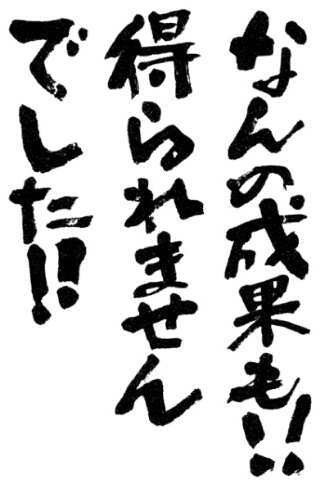 なんの成果も!!
得られません
でした!!